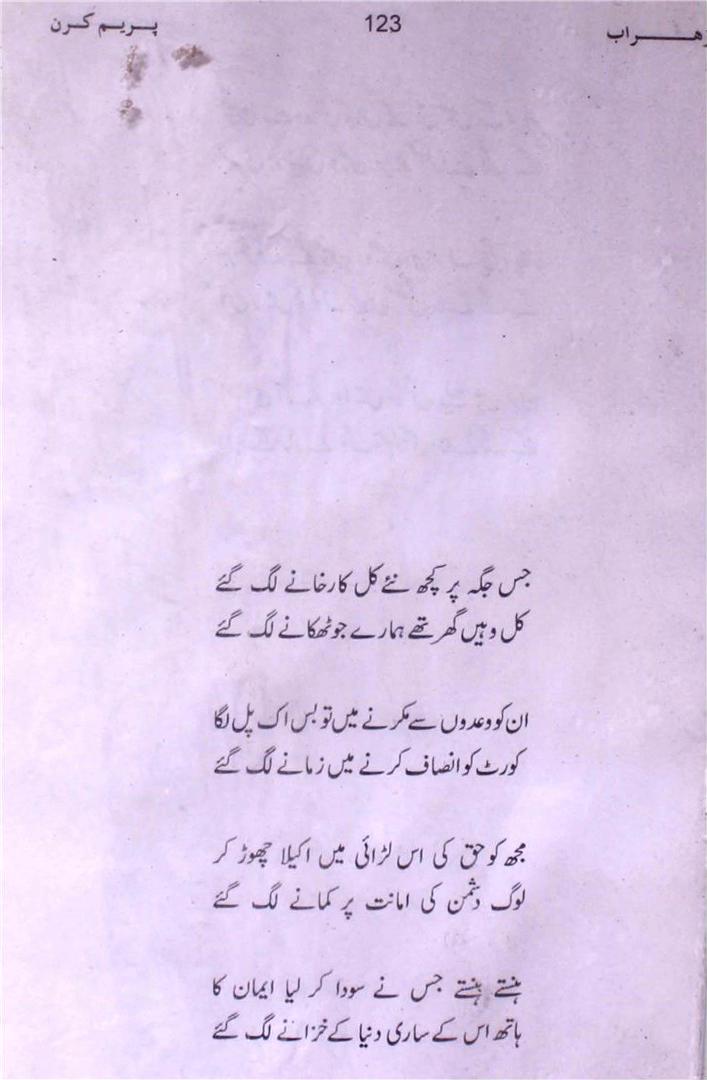 پریم کرن 123 زهراب
جس جگہ پر کچھ نئے کل کارخانے لگ گئے
کل وہیں گھر تھے ہمارے جو ٹھکانے لگ گئے
ان کو وعدوں سے مکرنے میں تو بس اک پل لگا
کورٹ کو انصاف کرنے میں زمانے لگ گئے
مجھ کو حق کی اس لڑائی میں اکیلا چھوڑ کر
لوگ دشمن کی امانت پر کمانے لگ گئے
ہنستے ہنستے جس نے سودا کر لیا ایمان کا
ہاتھ اس کے ساری دنیا کے خزانے لگ گئے